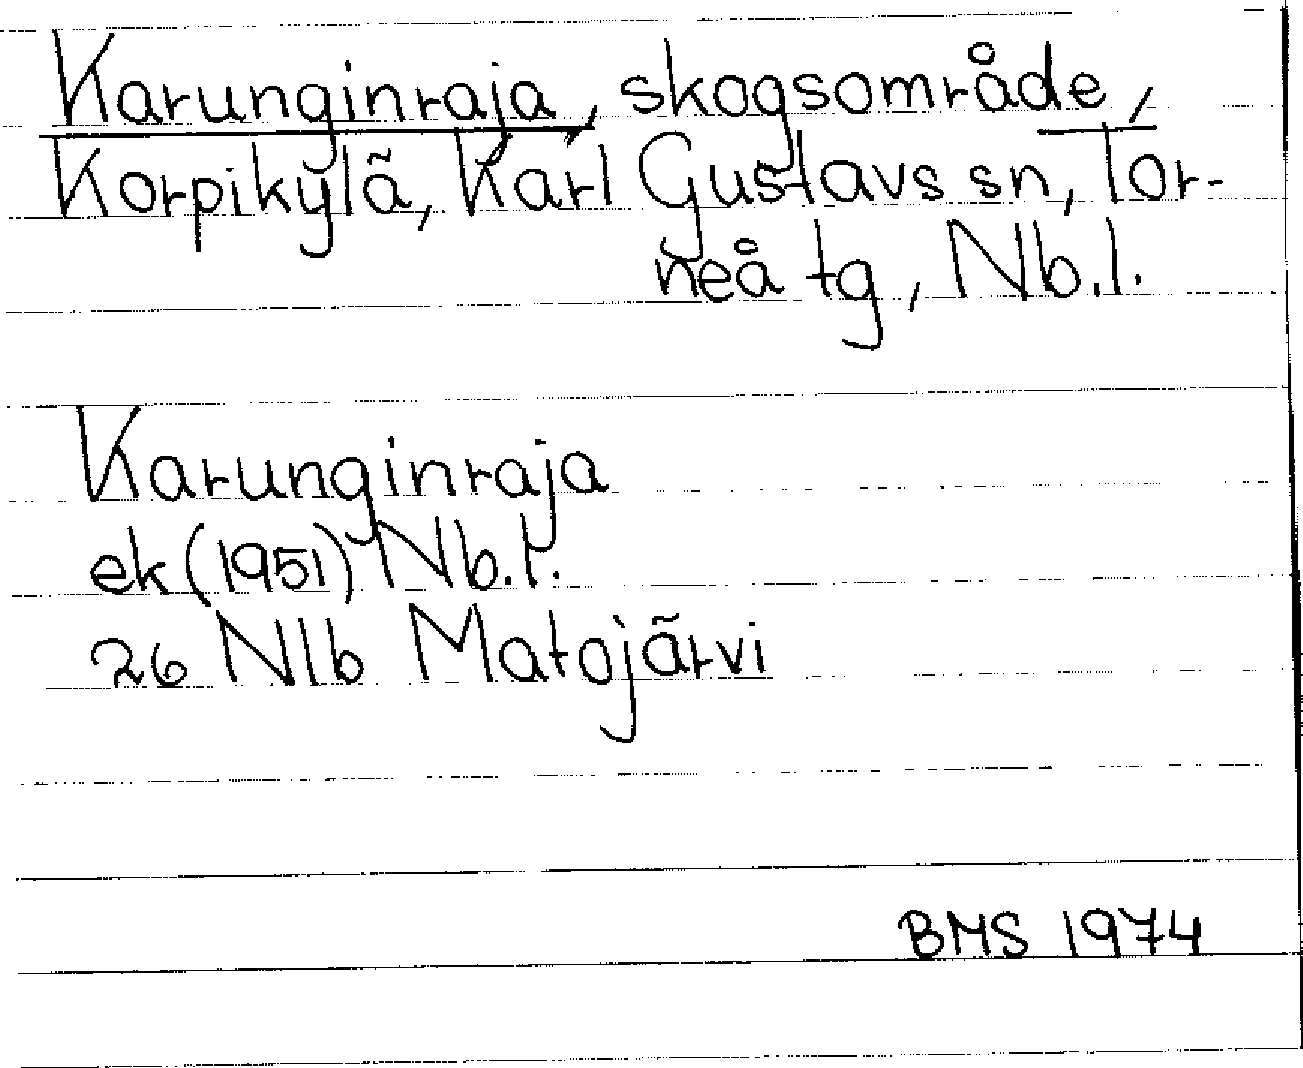 Karunginraja, skogsområde,
Korpikylä, Karl Gustavs sn, Tor-
neå tg, Nb.l.
Karunginraja
ek (1951) Nb.l.
26 Nlb Matojärvi
BMS 1974